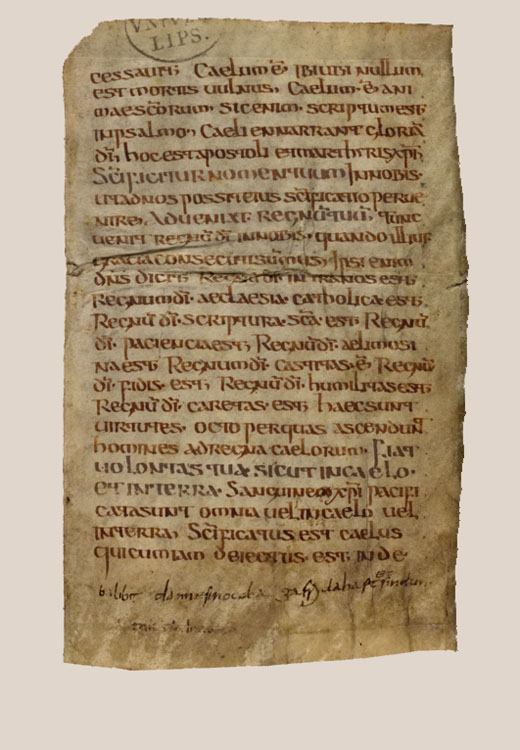 UNIVER
LIPS.
cessauit· Caelum ē̄· ibi ubi nullum
est mortis uulnus, Caelum· ē· ani
mae sc̄orum, sic enim· scriptum est
in psalmo, Caeli ennarrant gloriā
dī, hoc est apostoli et marthiris xp̄i,
Sc̄ificitur nomen tuum in nobis·
ut ad nos possit eius sc̄ificatio perue
nire, Adueniat regnū tuū, tunc
uenit regnū dī in nobis· quando illius
gratia consecuti sumus, Ipsi enim
dn̄s dicit, Regnū dī intra nos est·
Regnum dī· aeclaesia· catholica est·
Regnū dī· scriptura· sc̄a· est· Regnū
dī· paciencia est, Regnū dī· aelimosi
na est, Regnum dī· castitas· ē· Regnū
dī· fidis· est, Regnū dī· humilitas est
Regnū dī· caretas· est, haec sunt
uirtutes· octo per quas ascendunt
homines ad regna caelorum, Fiat
uolontas tua sicut in caelo·
et in terra· Sanguine xp̄i pacifi
cata sunt omnia uel in caelo uel
in terra, Sc̄ificatus est caelus
qui cum iam deiectus· est· inde·